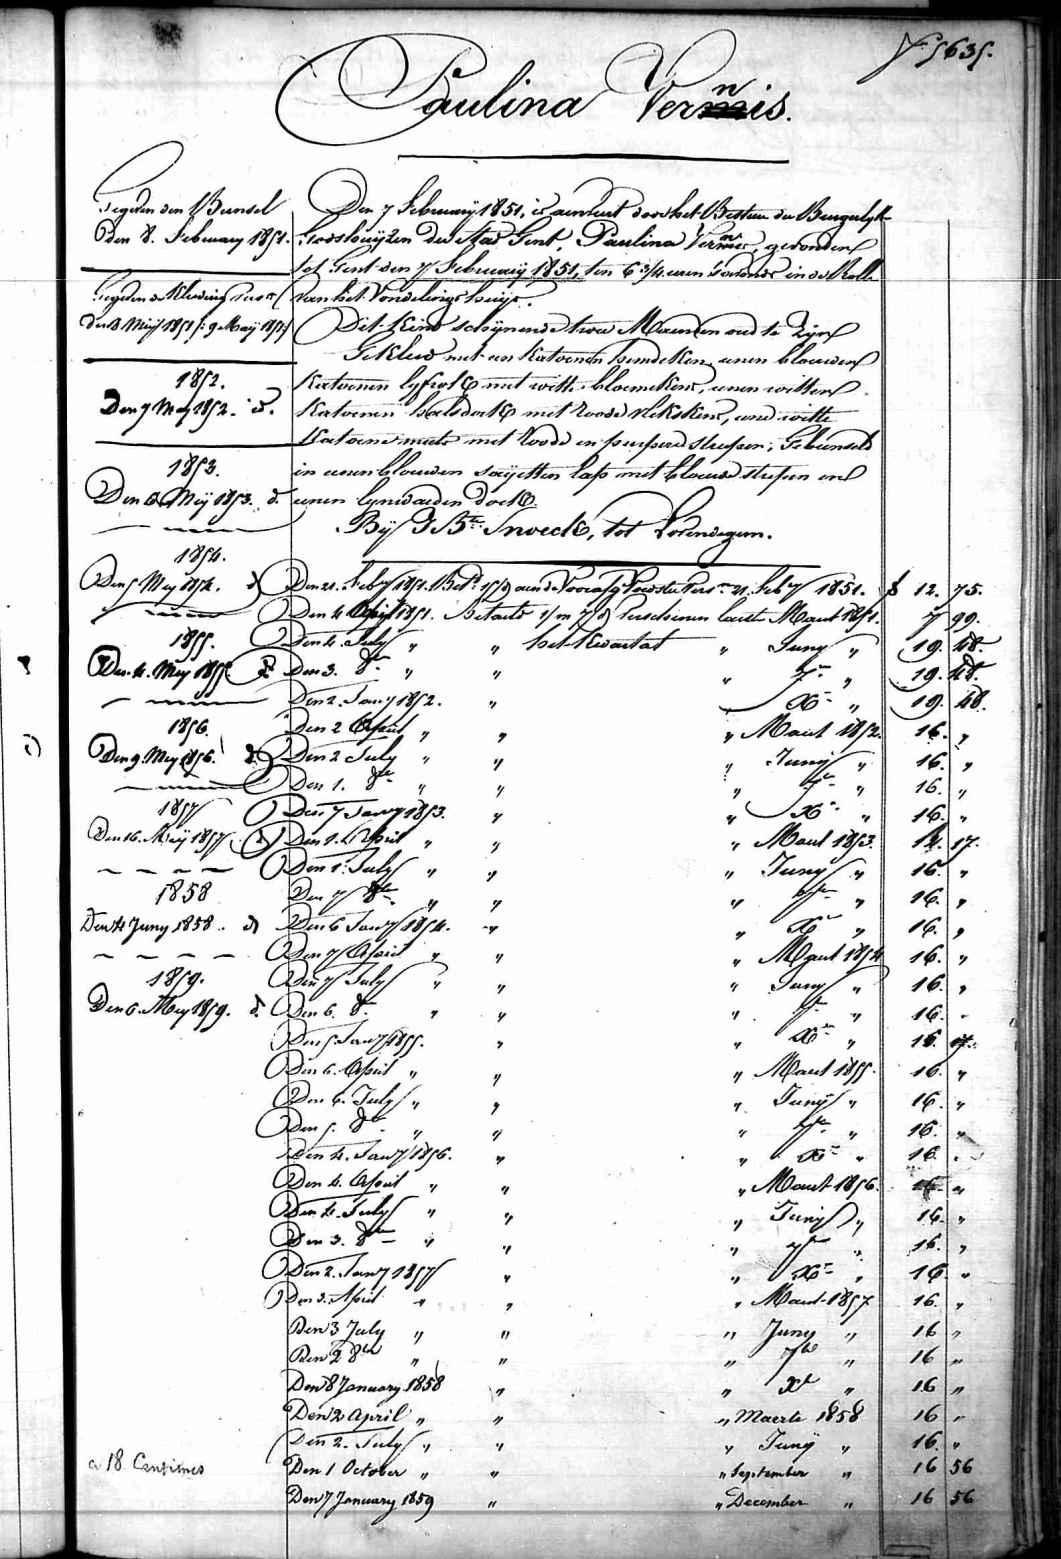 N° 5635.
Paulina Vernis.
Gegeven den Bunsel
den 8. February 1851.
Gegeven de Kleeding
den 13 Meij 1851 9 Maij 1851
1852.
Den 7 Mey 1852. d.
1853.
Den 6 Meij 1853. d.
1854.
Den 5 Mey 1854. d
1855.
Den 4. Mey 1855. d.
1856.
Den 9 Mey 1856. d.
1857
Den 16. Meij 1857. d
1858
Den 4 Juny 1858. d
1859.
Den 6. Mey 1859. d.
a 18 Centimes
Den 7 February 1851, is aenveert door het Bestuer der Burgerlyke
Godshuijzen der Stad Gent, Paulina Vernis, gevonden
tot Gent den 7 February 1851, ten 6 3/4 uren 's avonds in de Rolle
van het Vondelings huijs.
Dit Kind schijnende twee Maenden oud te Zijn
Gekleed met een katoenen hemdeken, eenen blauwen
katoenen lyfrok met witte bloemekens, eenen witten
katoenen halsdoek met roode vlekskens, eene witte
katoene muts met roode en purpere streepen; Gebunseld
in eenen blauwen saeijetten lap met blauwe streepen en
eenen lynwaeden doek.
Bij J. Bte Snoeck, tot Vosendegem.
Den 21. Feby 1851. Bet. aen de Voorafg Voedster 21 Feby 1851. f 12. 75.
Den 4 April 1851. Betaeld 1/m 7/d verschenen laeste Maart 1851. 7 99.
Den 4. July " " het kwartaal " Juny " 19. 48.
Den 3. 8bre " " " 7bre " 19. 48.
Den 2. Jany 1852. " " Xbre " 19. 48.
Den 2 April " " " Maart 1852. 16. "
Den 2 July " " " Juny " 16. "
Den 1. 8bre " " " 7bre " 16. "
Den 7 Jany 1853. " " Xbre " 16. "
Den 1. April " " " Maart 1853. 14. 17.
Den 1. July " " " Juny " 16. "
Den 7 8bre " " " 7bre " 16. "
Den 6 Jany 1854. " " Xbre " 16. "
Den 7 April " " " Maart 1854 16. "
Den 7 July " " " Juny " 16. "
Den 6. 8bre " " " 7bre " 16. "
Den 5 Jany 1855. " " Xbre " 16.
Den 6. April " " " Maart 1855. 16. "
Den 6. July " " " Junÿ " 16. "
Den 5. 8bre " " " 7bre " 16. "
Den 4. Jany 1856. " " Xbre " 16. "
Den 4. April " " " Maart 1856. 16. "
Den 4. July " " " Junÿ " 16. "
Den 3. 8bre " " " 7bre " 16. "
Den 2. Jany 1857 " " Xbre " 16. "
Den 3. April " " " Maart 1857 16. "
Den 3 July " " " Juny " 16 "
Den 2 8bre " " " 7bre " 16 "
Den 8 January 1858 " " Xbre " 16 "
Den 2 April " " " Maerte 1858 16 "
Den 2. July " " " Junÿ " 16. "
Den 1 October " " " September " 16 56
Den 7 January 1859 " " December " 16 56